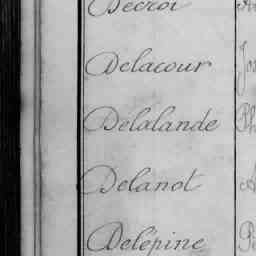 Decroi
Delacour
Delalande Ph
Delanot
Delépine